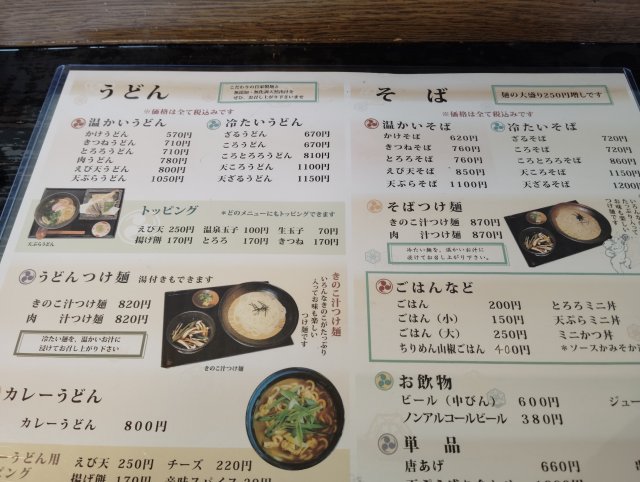 うどん
こだわりの自家製麺と
ぜひ、お召し上がり下さいませ
※価格は全て税込みです
温かいうどん
かけうどん 570円
きつねうどん 710円
とろろうどん 710円
肉うどん 780円
えび天うどん 800円
天ぷらうどん 1050円
冷たいうどん
ざるうどん 670円
ころうどん 670円
ころとろろうどん 810円
天ころうどん 1100円
天ざるうどん 1150円
天ぷらうどん
トッピング ※どのメニューにもトッピングできます
えび天 250円 温泉玉子 100円 生玉子 70円
揚げ餅 170円 とろろ 170円 きつね 170円
うどんつけ麺 湯付きもできます
きのこ汁つけ麺 820円
肉 汁つけ麺 820円
冷たい麺を、温かいお汁に
浸けてお召し上がり下さい
きのこ汁つけ麺
いろんなきのこがたっぷり
入ってお味も楽しい
つけ麺です
きのこ汁つけ麺
カレーうどん
カレーうどん 800円
ーうどん用
ピング
えび天 250円 チーズ 220円
揚げ餅 170円 辛味スパイス 30円
そば
麺の大盛り250円増しです
※価格は全て税込みです
温かいそば
かけそば 620円
きつねそば 760円
とろろそば 760円
えび天そば 850円
天ぷらそば 1100円
冷たいそば
ざるそば 720円
ころそば 720円
ころとろろそば 860円
天ころそば 1150円
天ざるそば 1200
そばつけ麺
きのこ汁つけ麺 870円
肉 汁つけ麺 870円
冷たい麺を、温かいお汁に
浸けてお召し上がり下さい。
ごはんなど
ごはん 200円
ごはん（小） 150円
ごはん（大） 250円
ちりめん山椒ごはん 400円
とろろミニ丼
天ぷらミニ丼
ミニかつ丼
＊ソースかみそか
お飲物
ビール（中びん） 600円
ノンアルコールビール 380円
ジュー
単品
唐あげ 660円
550円